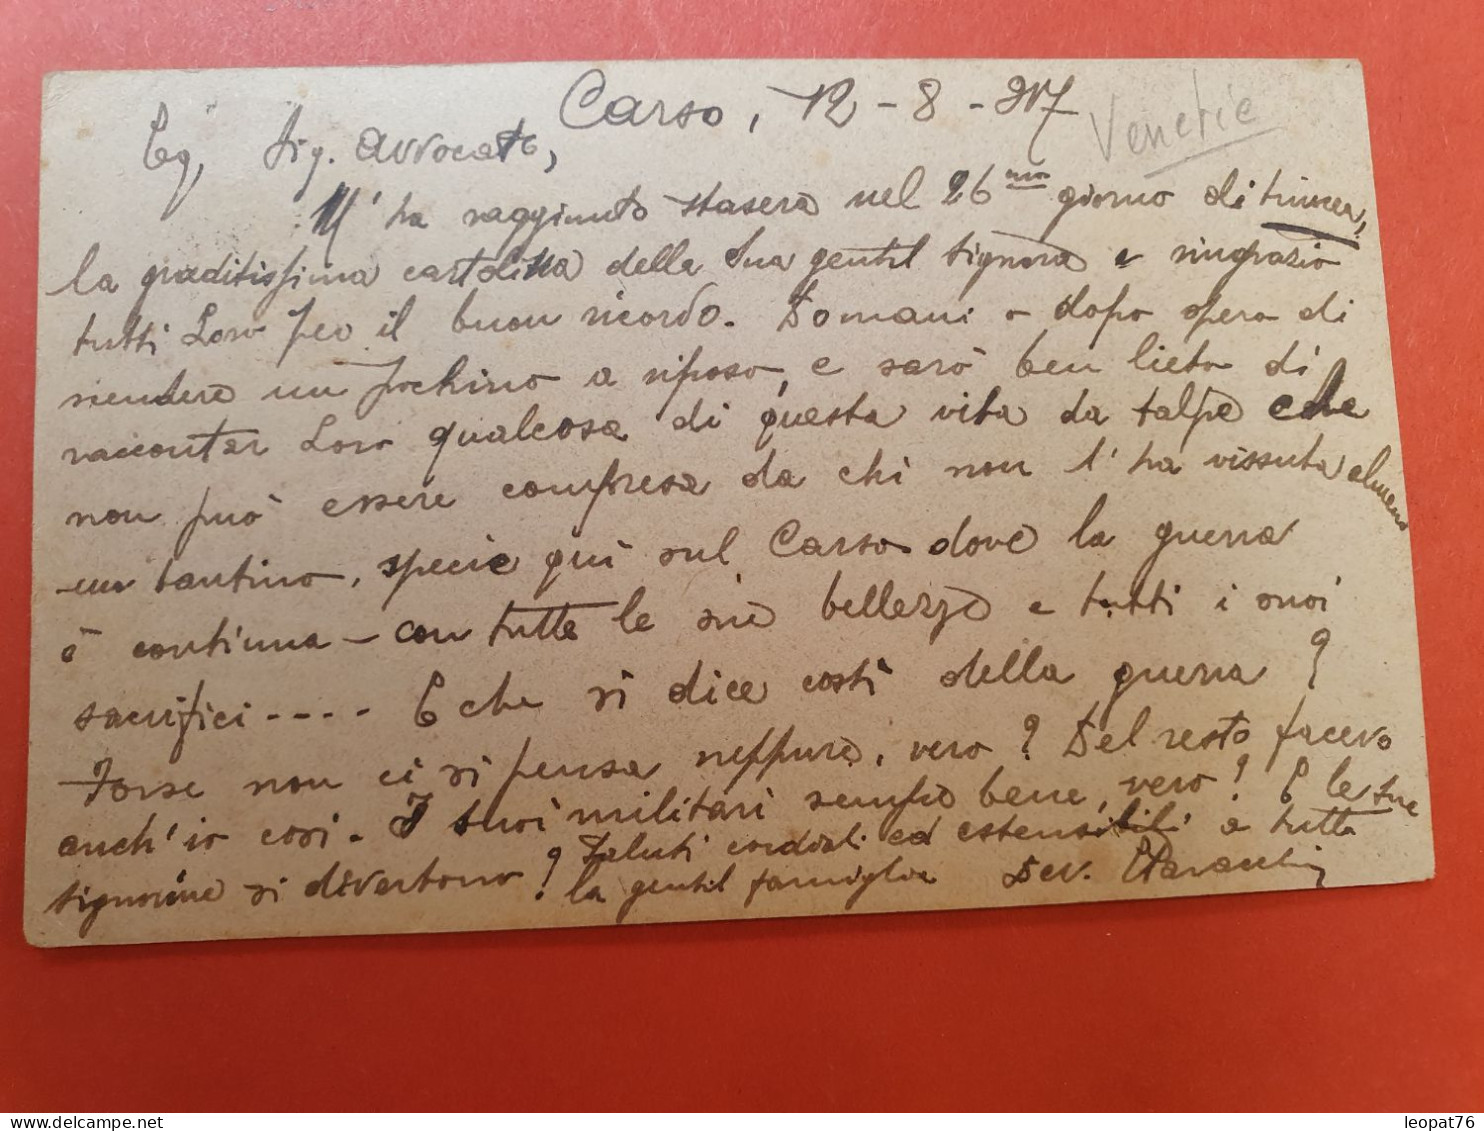 Carso, 12-8-917
Venetie
Eg. Sig. Avvocato,
M'ha raggiunto stasera nel 26mo giorno di trincea,
la graditissima cartolina della Sua gentil Signora e ringrazio
tutti Loro per il buon ricordo. Domani o dopo spero di
riendere un pochino a riposo, e sarò ben lieto di
raccontar Loro qualcosa di questa vita da talpe che
non può essere compresa da chi non l'ha vissuta almeno
un tantino, specie qui sul Carso dove la guerra
è continua - con tutte le sue bellezze e tutti i suoi
sacrifici.... E che si dice costì della guerra?
Forse non ci si pensa neppure, vero? Del resto facevo
anch'io così. I suoi militari sempre bene, vero? E le tre
signorine si divertono? Saluti cordiali ed estensibili a tutta
la gentil famiglia Dev.
leopat76